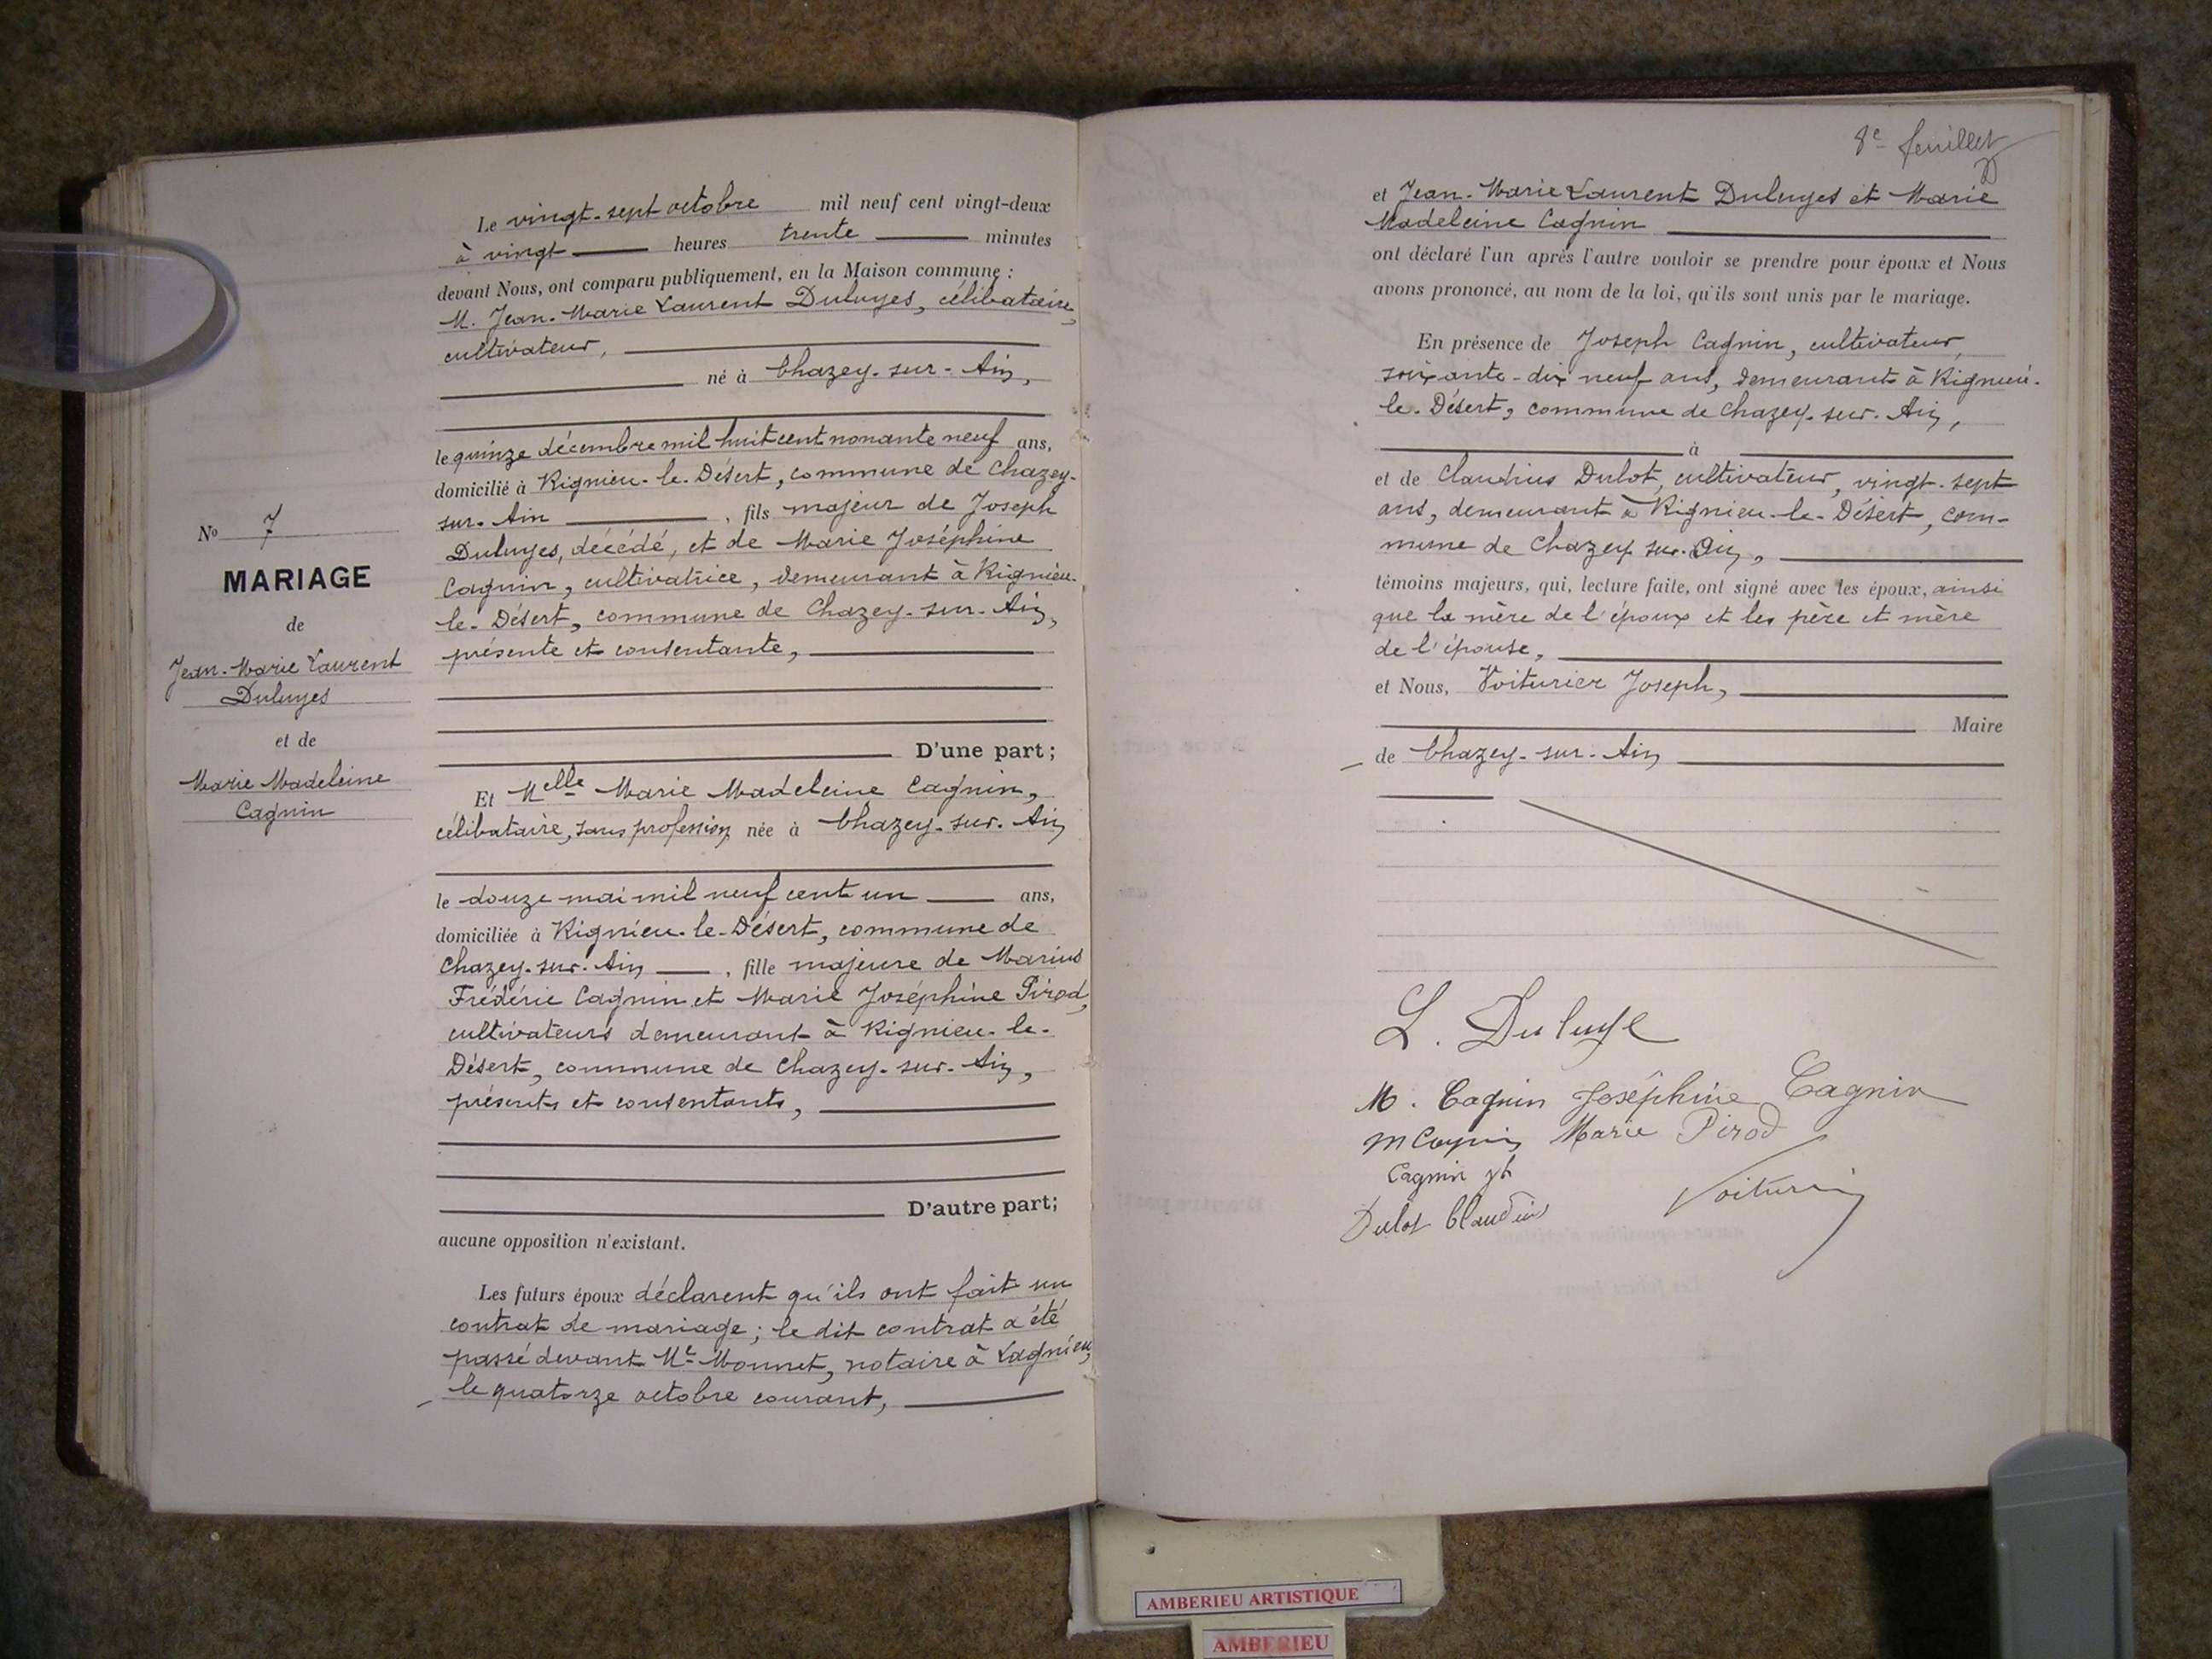 Nº 7
MARIAGE
de
Jean-Marie Laurent
Duluyes
et de
Marie Madeleine
Cagnin
Le vingt-sept octobre mil neuf cent vingt-deux
à vingt heures trente minutes
devant Nous, ont comparu publiquement, en la Maison commune :
M. Jean-Marie Laurent Duluyes, célibataire,
cultivateur,
né à Chazey-sur-Ain,
le quinze décembre mil huit cent nonante neuf ans,
domicilié à Rignieu-le-Désert, commune de Chazey-
sur-Ain, fils majeur de Joseph
Duluyes, décédé, et de Marie Joséphine
Cagnin, cultivatrice, demeurant à Rignieu-
le-Désert, commune de Chazey-sur-Ain,
présente et consentante,
D'une part;
Et Melle Marie Madeleine Cagnin,
célibataire, sans profession née à Chazey-sur-Ain
le douze mai mil neuf cent un ans,
domiciliée à Rignieu-le-Désert, commune de
Chazey-sur-Ain, fille majeure de Marius
Frédéric Cagnin et Marie Joséphine Pirod,
cultivateurs demeurant à Rignieu-le-
Désert, commune de Chazey-sur-Ain,
présents et consentants,
D'autre part;
aucune opposition n'existant.
Les futurs époux déclarent qu'ils ont fait un
contrat de mariage; le dit contrat a été
passé devant Me Monnet, notaire à Lagnieu,
le quatorze octobre courant,
8e feuillet
et Jean-Marie Laurent Duluyes et Marie
Madeleine Cagnin
ont déclaré l'un après l'autre vouloir se prendre pour époux et Nous
avons prononcé, au nom de la loi, qu'ils sont unis par le mariage.
En présence de Joseph Cagnin, cultivateur,
soixante-dix neuf ans, demeurant à Rignieu-
le-Désert, commune de Chazey-sur-Ain,
à
et de Claudius Dulot, cultivateur, vingt-sept
ans, demeurant à Rignieu-le-Désert, com-
mune de Chazey-sur-Ain,
témoins majeurs, qui, lecture faite, ont signé avec les époux, ainsi
que la mère de l'époux et les père et mère
de l'épouse,
et Nous, Voiturier Joseph,
Maire
de Chazey-sur-Ain
L. Duluye
M. Cagnin Joséphine Cagnin
M Cagnin Marie Pirod
Cagnin jh
Dulot Claudius Voiturier
AMBERIEU ARTISTIQUE
AMBERIEU